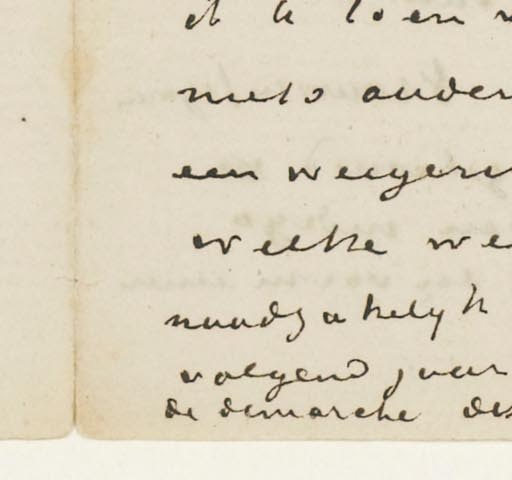 it te doen
niets ander
een weiger
welke we
noodzakelyk
volgend jaar
de demarche des